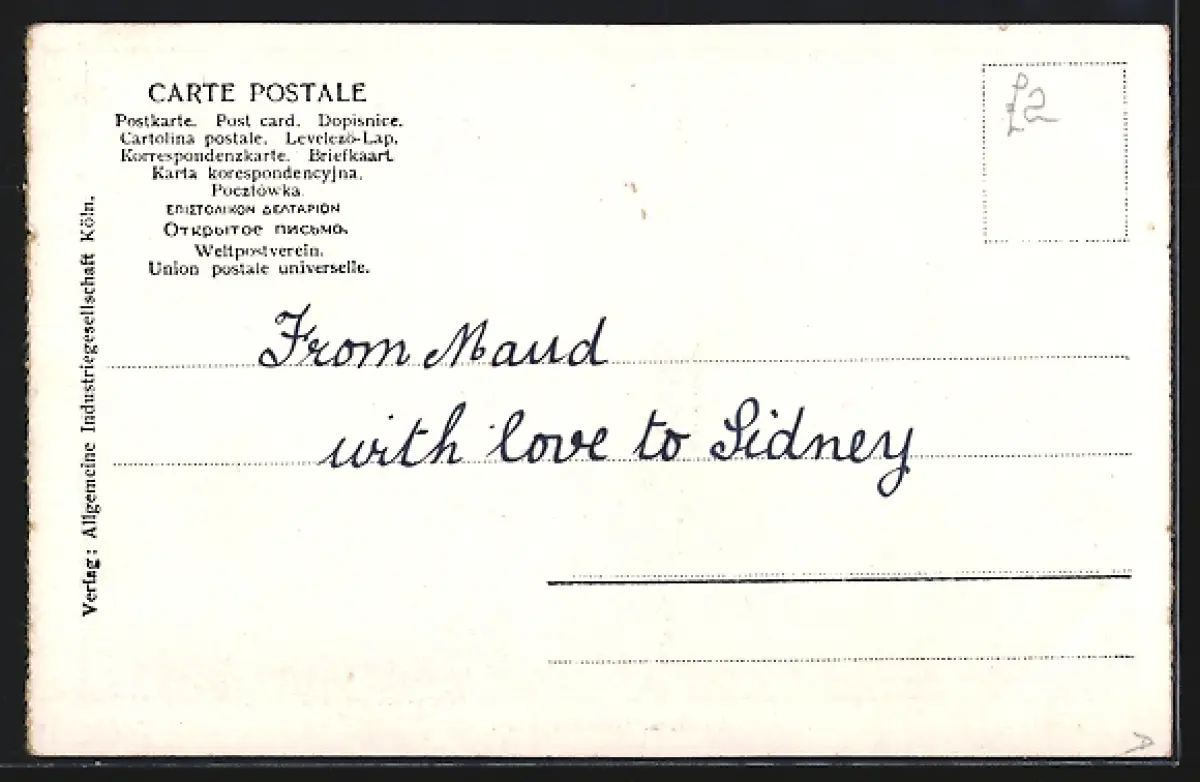 CARTE POSTALE
Postkarte. Post card. Dopisnice.
Cartolina postale. Levelező-Lap.
Korrespondenzkarte. Briefkaart
Karta korespondencyjna.
Pocztówka.
ΕΠΙΣΤΟΛΙΚΟΝ ΔΕΛΤΑΡΙΟΝ
Открытое письмо.
Weltpostverein.
Union postale universelle.
£2
Verlag: Allgemeine Industriegesellschaft Köln.
From Maud
with love to Sidney